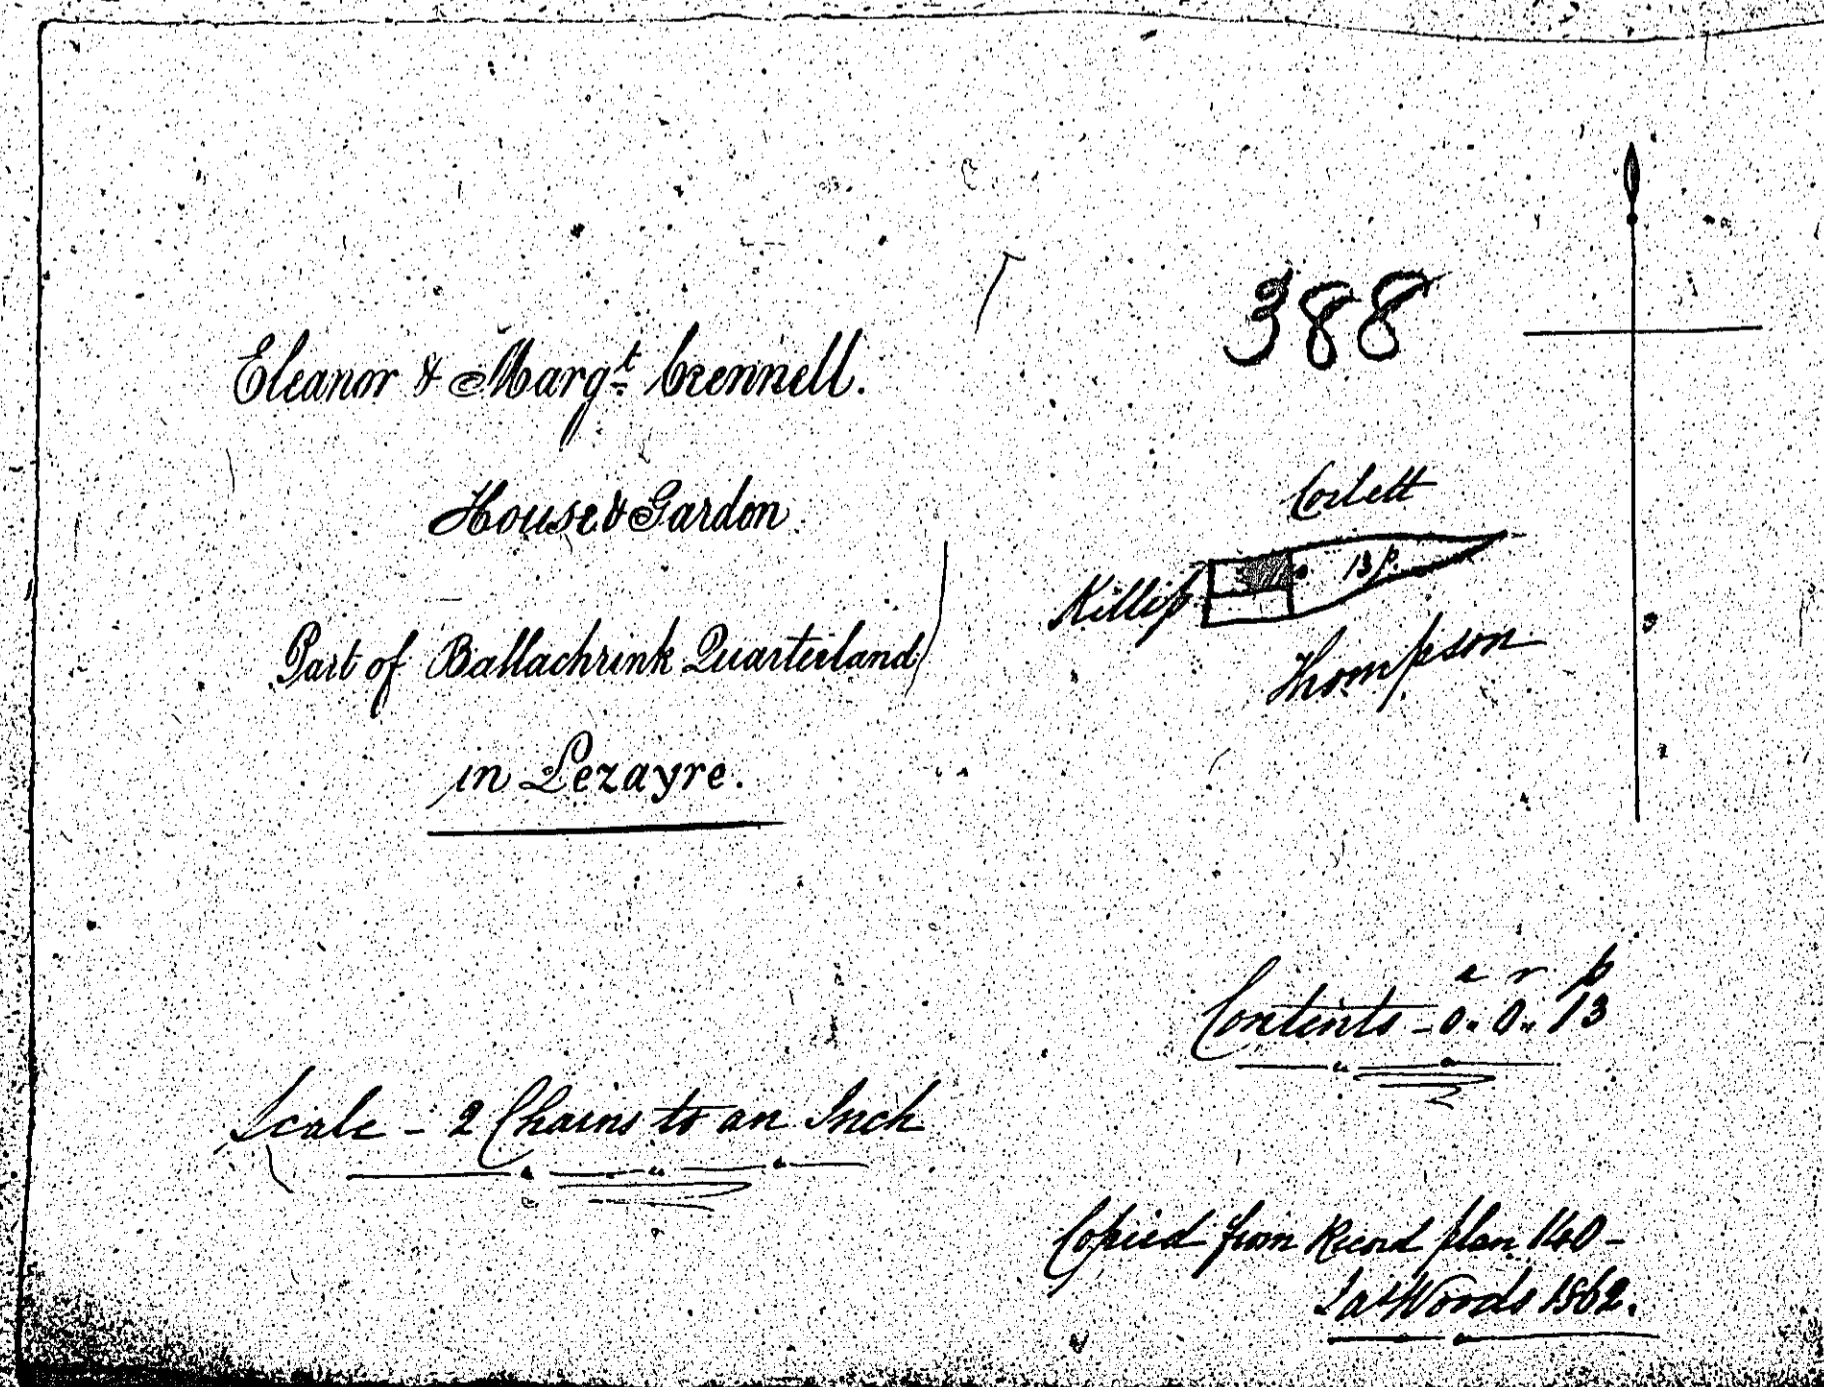 Eleanor & Margt. Crennell.
House & Garden
Part of Ballachrink Quarterland
in Lezayre.
388
Corlett
Killip
13 p.
Thompson
a r p
Contents - 0. 0. 13
Scale - 2 Chains to an Inch
Copied from Record plan 140 -
Jas Woods 1862.